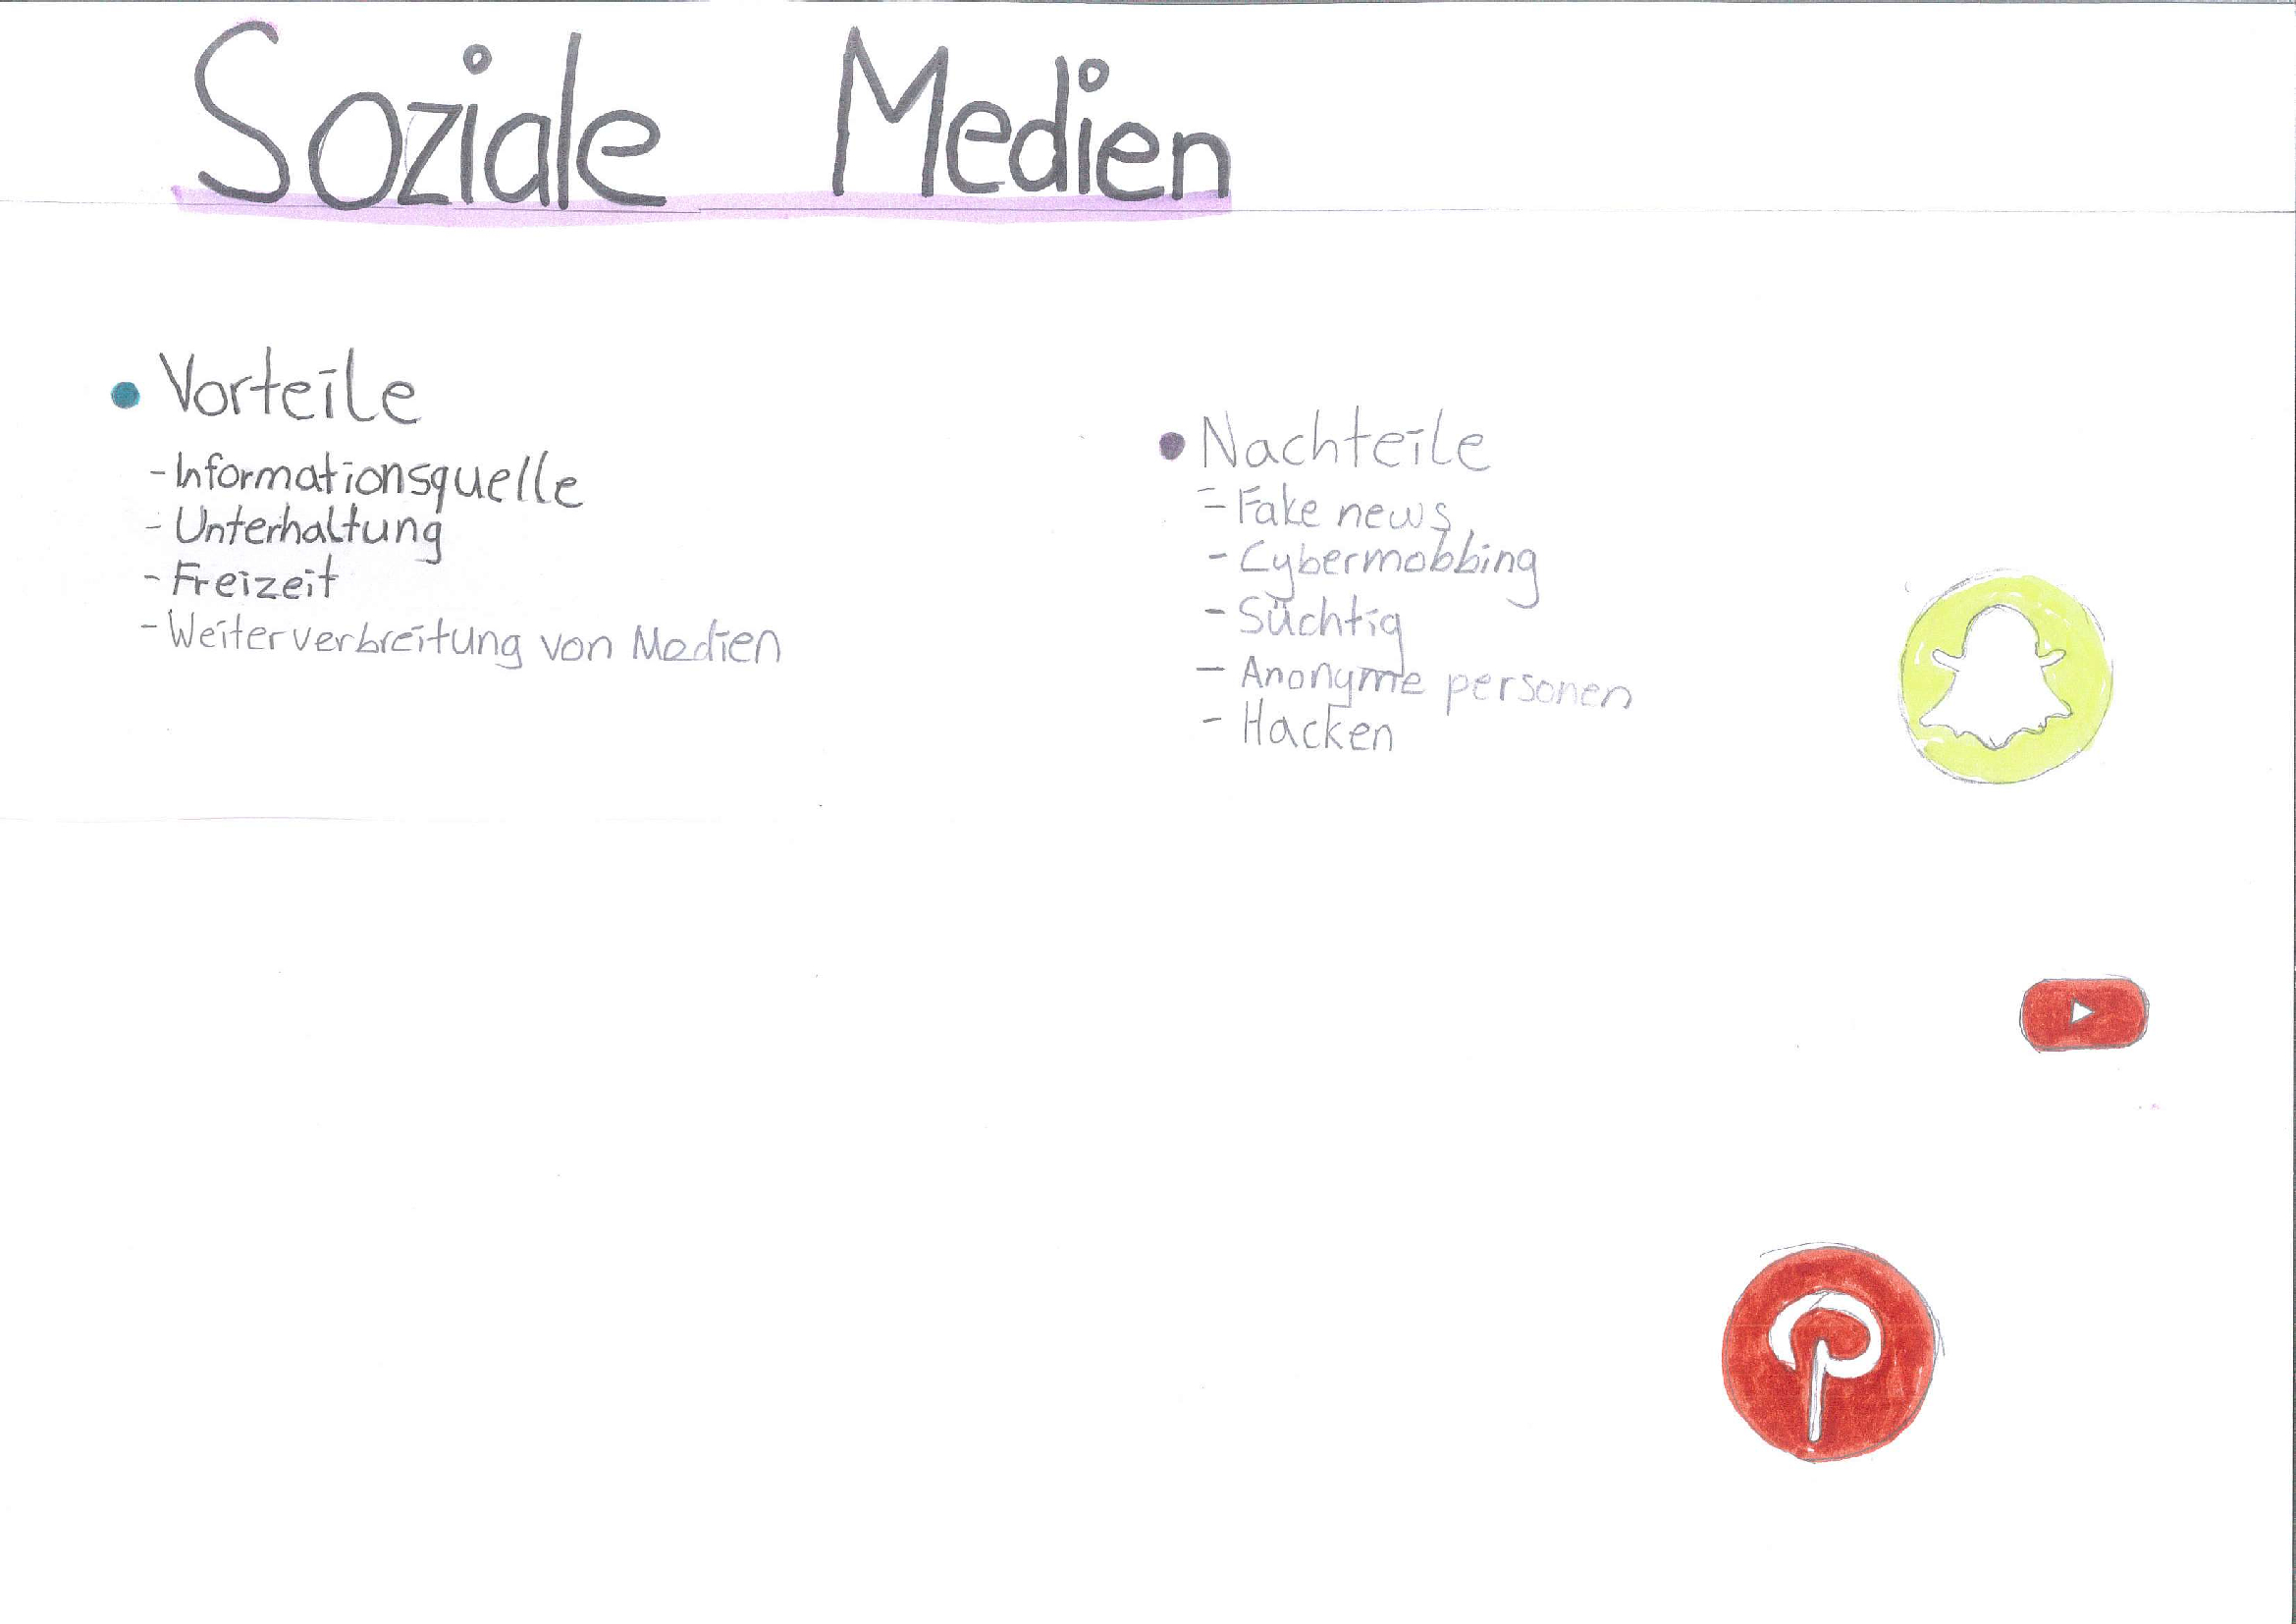 Soziale Medien
• Vorteile
- Informationsquelle
- Unterhaltung
- Freizeit
- Weiterverbreitung von Medien
• Nachteile
- Fake news
- Cybermobbing
- Süchtig
- Anonyme personen
- Hacken